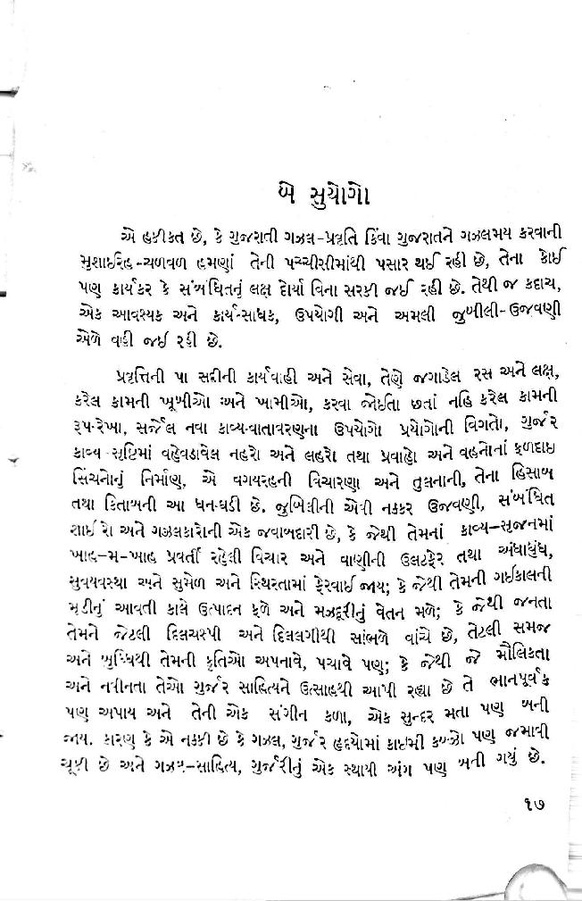 બે સુયોગો
એ હકીકત છે, કે ગુજરાતી ગઝલ-પ્રવૃતિ કિંવા ગુજરાતને ગઝલમય કરવાની
મુશાઈરહ-ચળવળ હમણાં તેની પચ્ચીસીમાંથી પસાર થઈ રહી છે, તેના કોઈ
પણ કાર્યકર કે સંબંધિતનું લક્ષ દોર્યા વિના સરકી જઈ રહી છે. તેથી જ કદાચ,
એક આવશ્યક અને કાર્ય-સાધક, ઉપયોગી અને અમલી જુબીલી-ઉજવણી
એળે વહી જઈ રહી છે.
પ્રવૃત્તિની પા સદીની કાર્યવાહી અને સેવા, તેણે જગાડેલ રસ અને લક્ષ,
કરેલ કામની ખૂબીઓ અને ખામીઓ, કરવા જોઈતા છતાં નહિ કરેલ કામની
રૂપ-રેખા, સર્જેલ નવા કાવ્ય-વાતાવરણના ઉપયોગો પ્રયોગોની વિગતો, ગુર્જર
કાવ્ય-સૃષ્ટિમાં વહેવડાવેલ નહરો અને લહરો તથા પ્રવાહો અને વહનોનાં ફળદાઇ
સિંચનોનું નિર્માણ, એ વગયરહની વિચારણા અને તુલનાની, તેના હિસાબ
તથા કિતાબની આ ધન-ઘડી છે. જુબિલીની એવી નક્કર ઉજવણી, સંબંધિત
શાઈરો અને ગઝલકારોની એક જવાબદારી છે, કે જેથી તેમનાં કાવ્ય-સૃજનમાં
ખાહ-મ-ખાહ પ્રવર્તી રહેલી વિચાર અને વાણીની ઉલટફેર તથા અંધાધુંધ,
સુવ્યવસ્થા અને સુમેળ અને સ્થિરતામાં ફેરવાઈ જાય; કે જેથી તેમની ગઈકાલની
મૂડીનું આવતી કાલે ઉત્પાદન ફળે અને મઝદૂરીનું વેતન મળે; કે જેથી જનતા
તેમને જેટલી દિલચસ્પી અને દિલલગીથી સાંભળે વાંચે છે, તેટલી સમજ
અને બુધ્ધિથી તેમની કૃતિઓ અપનાવે, પચાવે પણ; કે જેથી જે મૌલિકતા
અને નવીનતા તેઓ ગુર્જર સાહિત્યને ઉત્સાહથી આપી રહ્યા છે તે ભાનપૂર્વક
પણ અપાય અને તેની એક સંગીન કળા, એક સુન્દર મતા પણ બની
જાય. કારણ કે એ નક્કી છે કે ગઝલ, ગુર્જર હૃદયોમાં કાઇમી કબ્જો પણ જમાવી
ચૂકી છે અને ગઝલ-સાહિત્ય, ગુર્જરીનું એક સ્થાયી અંગ પણ બની ગયું છે.
૧૭